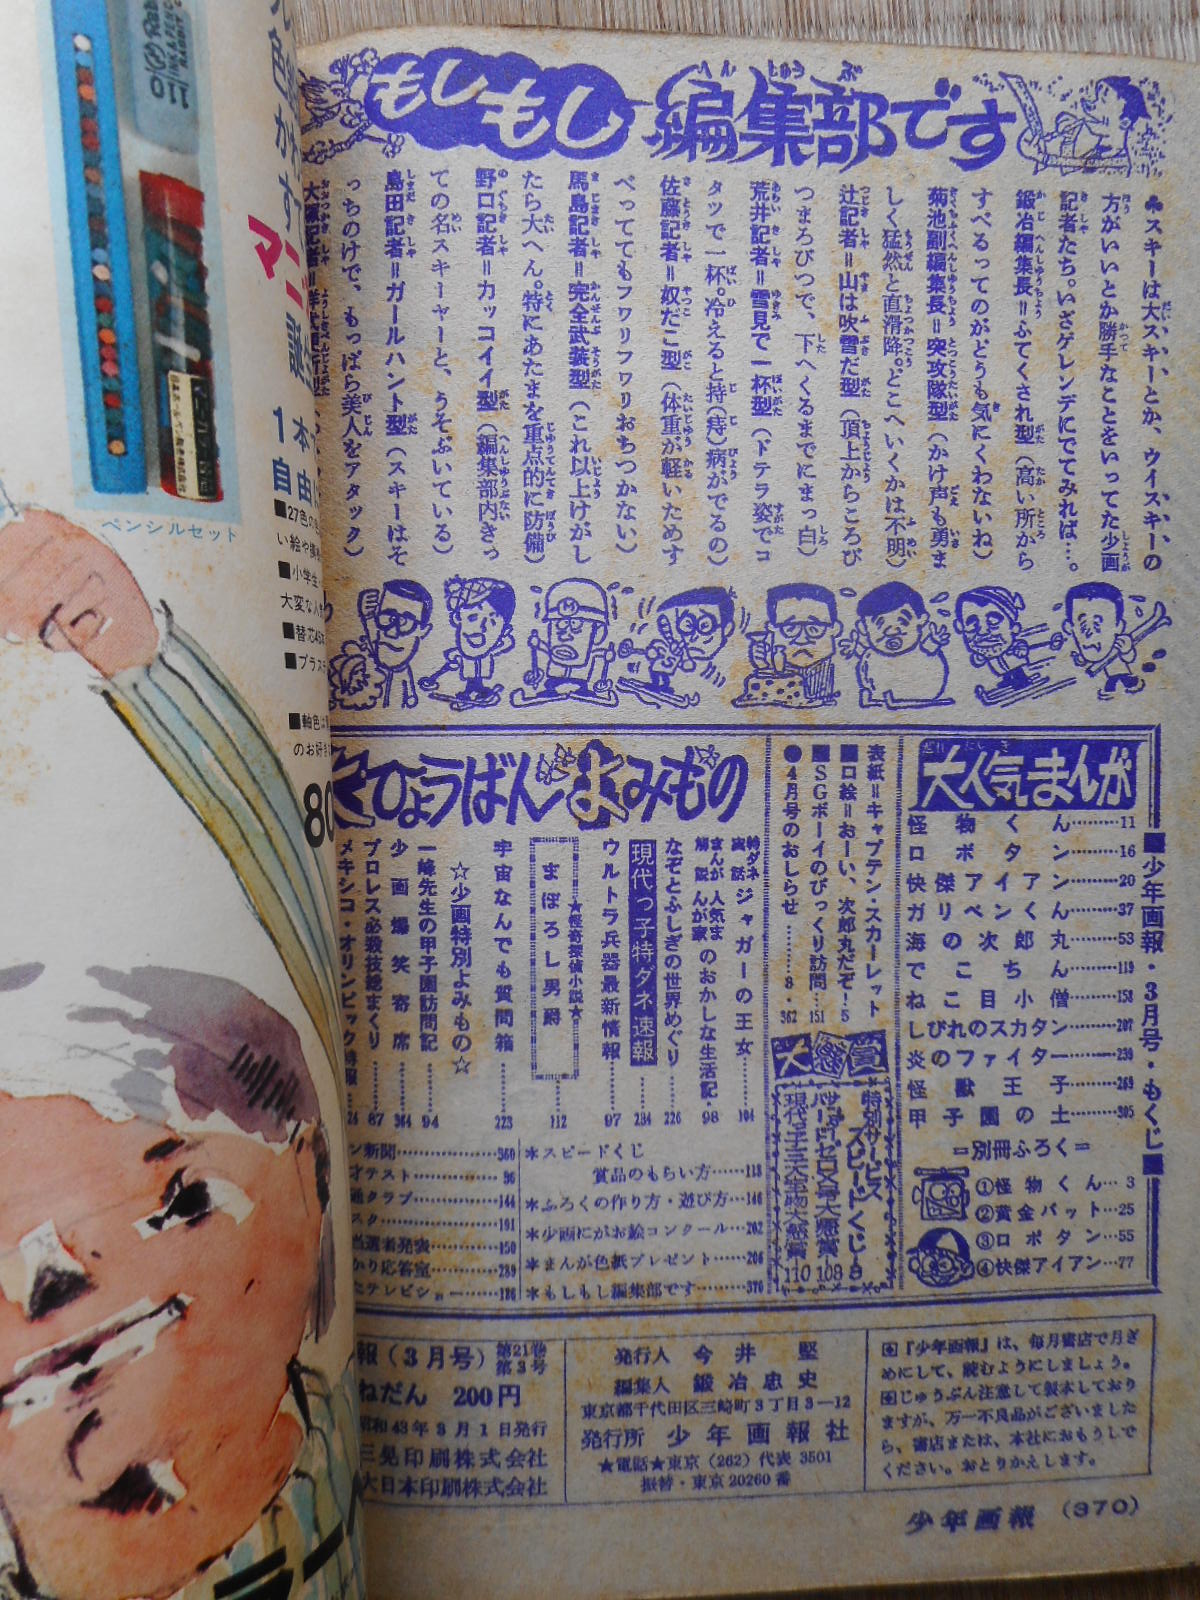 もしもし編集部です
♣スキーは大スキーとか、ウイスキーの
方がいいとか勝手なことをいってた少画
記者たち。いざゲレンデにでてみれば…。
鍛冶編集長＝ふてくされ型（高い所から
すべるってのがどうも気にくわないね）
菊池副編集長＝突攻隊型（かけ声も勇ま
しく猛然と直滑降。どこへいくかは不明）
辻記者＝山は吹雪だ型（頂上からころび
つまろびつで、下へくるまでにまっ白）
荒井記者＝雪見で一杯型（ドテラ姿でコ
タツで一杯。冷えると持（痔）病がでるの）
佐藤記者＝奴だこ型（体重が軽いためす
べってもフワリフワリおちつかない）
馬島記者＝完全武装型（これ以上けがし
たら大へん。特にあたまを重点的に防備）
野口記者＝カッコイイ型（編集部内きっ
ての名スキーヤーと、うそぶいている）
島田記者＝ガールハント型（スキーはそ
っちのけで、もっぱら美人をアタック）
■少年画報・3月号・もくじ■
大人気まんが
怪物くん………11
ロボタン………16
快傑アイアン………20
ガリペンくん………37
海の次郎丸………53
でこちん………119
ねこ目小僧………158
しびれのスカタン………207
炎のファイター………239
怪獣王子………269
甲子園の土………305
＝別冊ふろく＝
①怪物くん…3
②黄金バット…25
③ロボタン…55
④快傑アイアン…77
表紙＝キャプテン・スカーレット
■口絵＝おーい、次郎丸だぞ！5
■SGボーイのびっくり訪問…151
●4月号のおしらせ………8・362
大懸賞
特別サービス
スピードくじ・9
現代っ子三大生物大懸賞・110
大ひょうばんよみもの
特ダネ実話 ジャガーの王女………104
まんが解説 人気まんが家のおかしな生活記・98
なぞとふしぎの世界めぐり………226
現代っ子特ダネ速報………234
ウルトラ兵器最新情報………97
★怪奇探偵小説★
まぼろし男爵………112
宇宙なんでも質問箱………223
☆少画特別よみもの☆
一峰先生の甲子園訪問記………94
少画爆笑寄席………364
プロレス必殺技総まくり………87
メキシコ・オリンピック
＊スピードくじ
賞品のもらい方……118
＊ふろくの作り方・遊び方…146
＊少画にがお絵コンクール…262
＊まんが色紙プレゼント……266
＊もしもし編集部です……370
ン新聞………360
才テスト………96
クラブ………144
スク………191
当選者発表………150
かり応答室………289
テレビショー………186
報（3月号）第21巻第3号
ねだん 200円
昭和43年3月1日発行
三晃印刷株式会社
大日本印刷株式会社
発行人 今井 堅
編集人 鍛冶忠史
東京都千代田区三崎町3丁目3—12
発行所 少年画報社
★電話★東京（262）代表3501
振替・東京20260番
『少年画報』は、毎月書店で月ぎ
めにして、読むようにしましょう。
じゅうぶん注意して製本しており
ますが、万一不良品がございました
ら、書店または、本社におもうしで
ください。おとりかえします。
少年画報（370）
ペンシルセット
1本
自由に
■27色の
■小学生
大変な人
■替芯
■プラス
■軸色は
のお好き
80